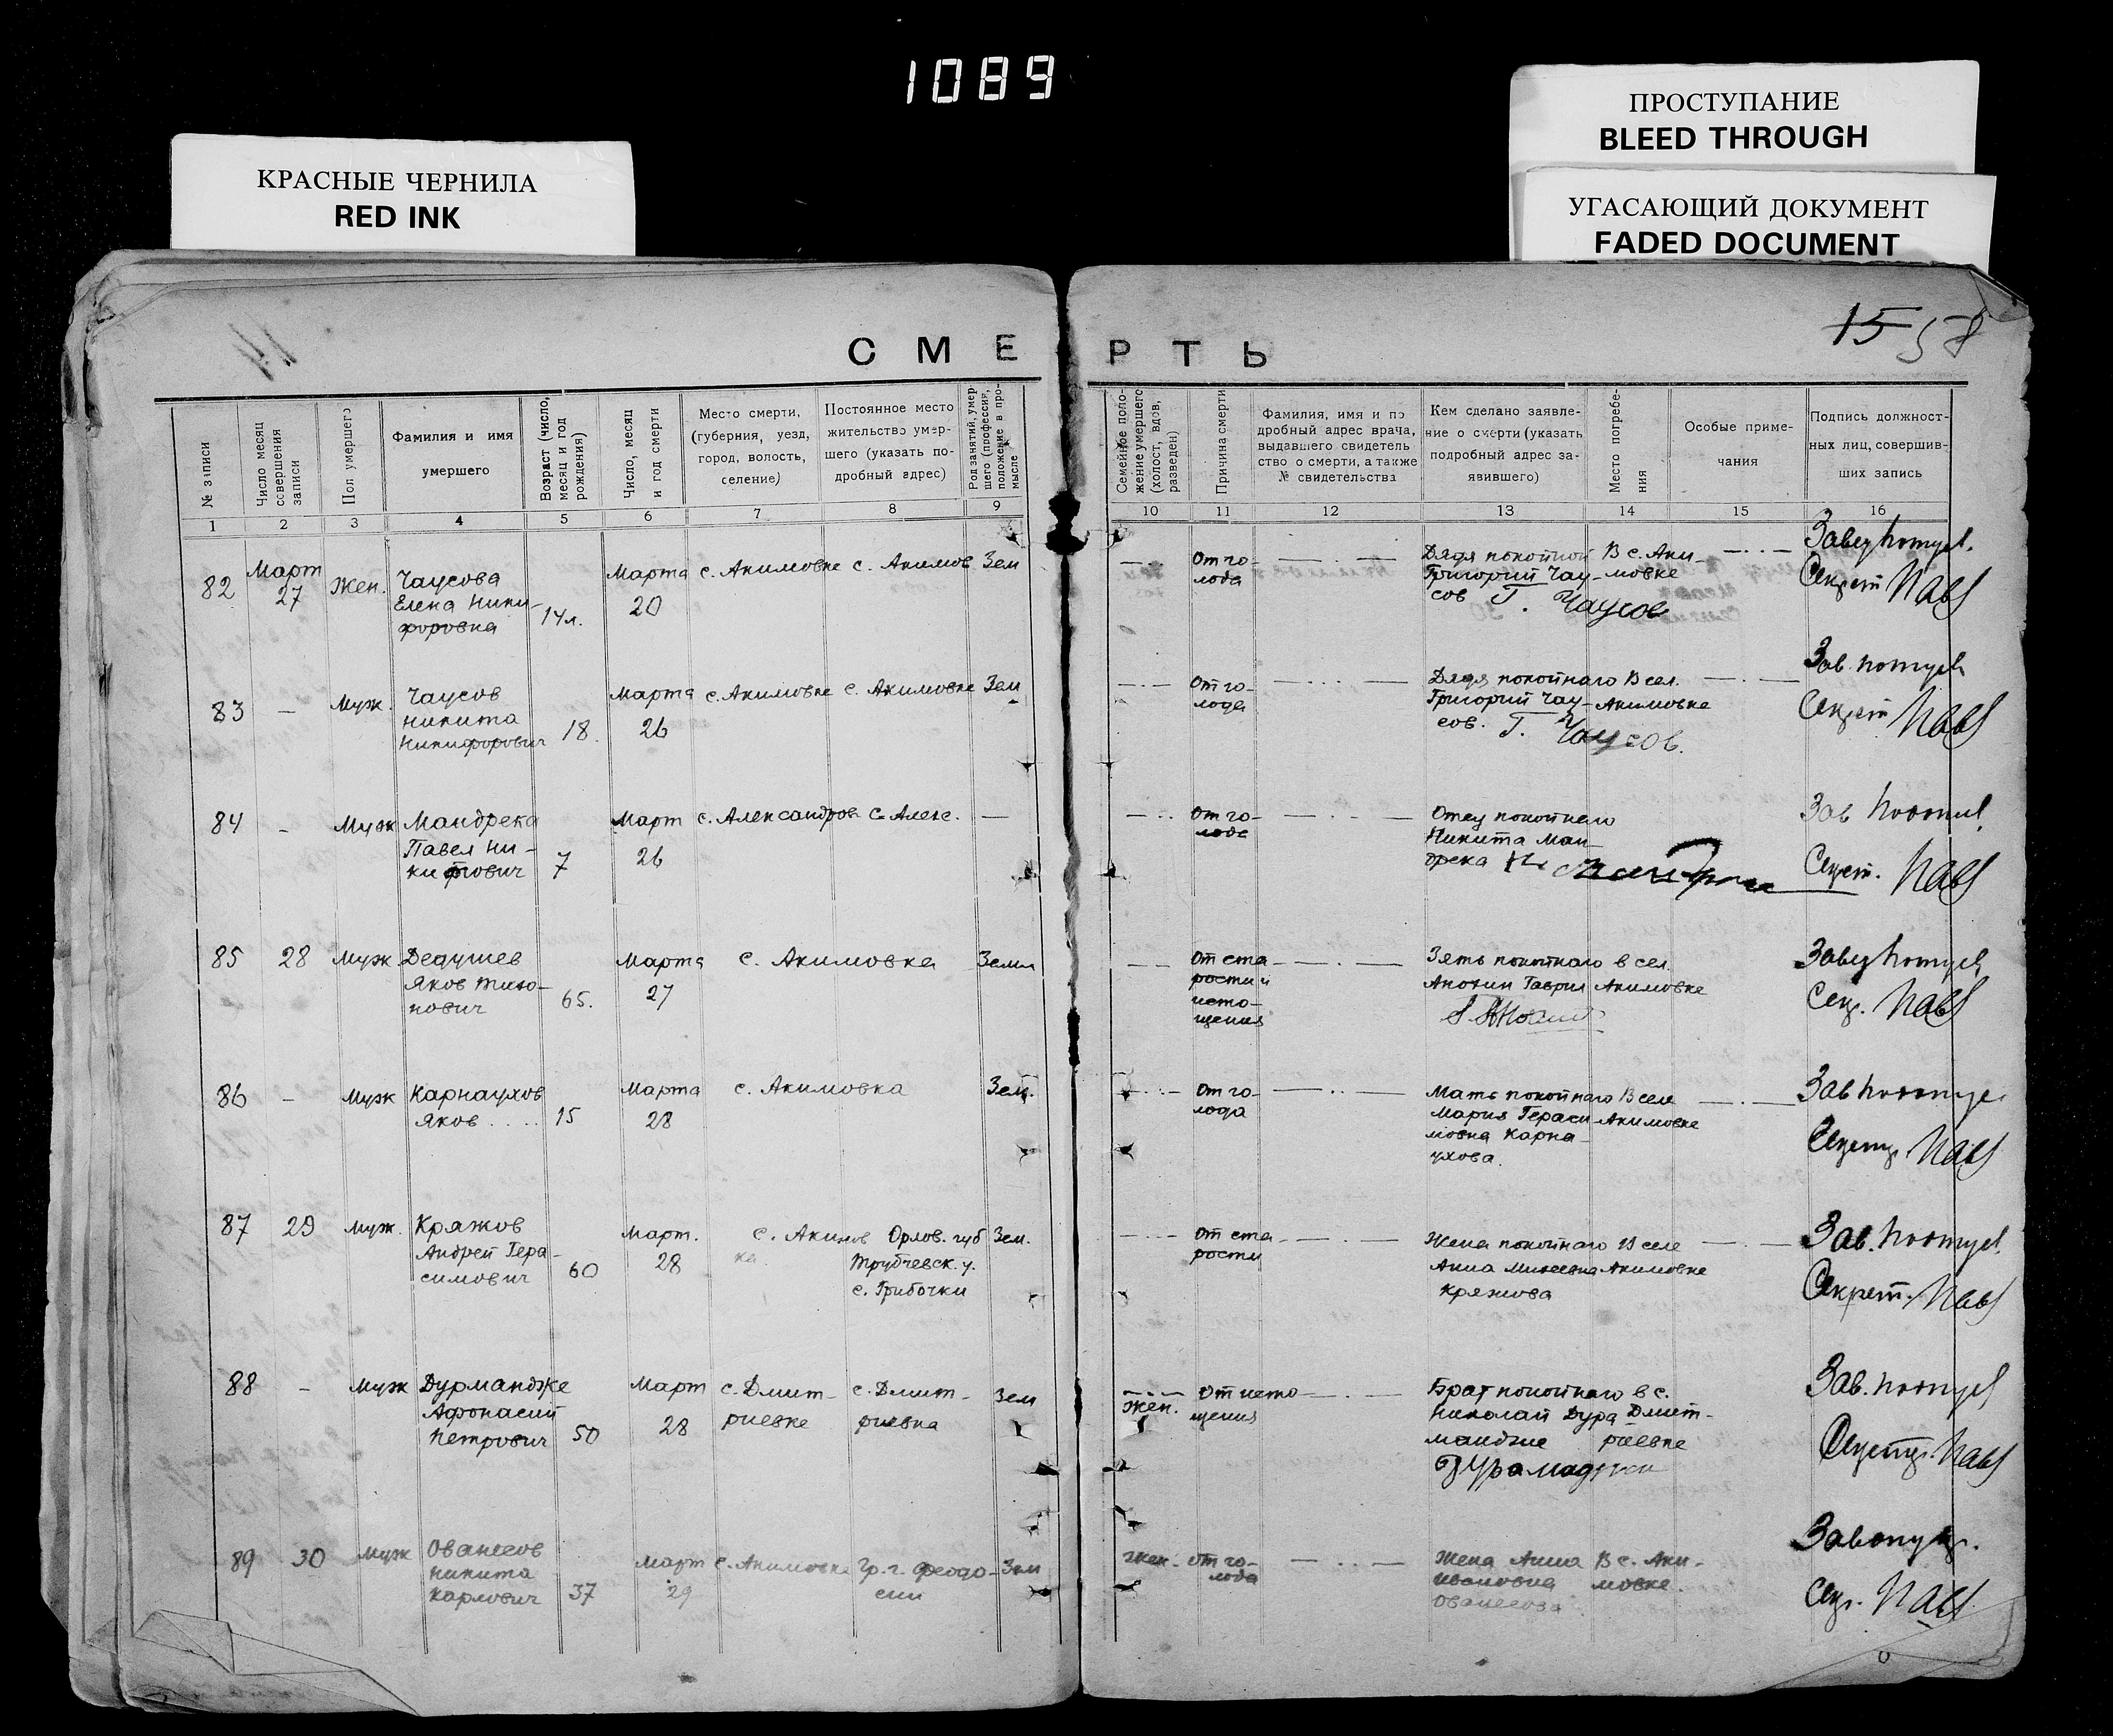 1089
КРАСНЫЕ ЧЕРНИЛА
RED INK
ПРОСТУПАНИЕ
BLEED THROUGH
УГАСАЮЩИЙ ДОКУМЕНТ
FADED DOCUMENT
14
15 58
СМЕРТЬ
№ записи
Число месяц совершения записи
Пол умершего
Фамилия и имя умершего
Возраст (число, месяц и год рождения)
Число, месяц и год смерти
Место смерти, (губерния, уезд, город, волость, селение)
Постоянное место жительство умершего (указать подробный адрес)
Род занятий, умершего (профессия, положение в промысле
Семейное положение умершего (холост, вдов, разведен)
Причина смерти
Фамилия, имя и подробный адрес врача, выдавшего свидетельство о смерти, а также № свидетельства
Кем сделано заявление о смерти (указать подробный адрес заявившего)
Место погребения
Особые примечания
Подпись должностных лиц, совершивших запись
1 2 3 4 5 6 7 8 9 10 11 12 13 14 15 16
82 Март 27 Жен. Чаусова Елена Никифоровна 14л. Марта 20 с. Акимовке с. Акимов Зем
От голода Дядя покойной Григорий Чаусов Г. Чаусов В с. Акимовке Секрет
83 — Муж. Чаусов Никита Никифорович 18. Марта 26 с. Акимовке с. Акимовке Зем
От голода Дядя покойнаго Григорий Чаусов. Г. Чаусов. В сел. Акимовке Секрет
84 — Муж Мандрека Павел Никитович 7 Март 26 с. Александров с. Алекс. —
От голода Отец покойнаго Никита Мандрека Зав
85 28 Муж Дедушев Яков Тихонович 65. Марта 27 с. Акимовка Земл
От старости и истощения Зять покойнаго Анохин Гаврил в сел. Акимовке Секр.
86 — Муж Карнаухов Яков 15 Марта 28 с. Акимовка Зем.
От голода Мать покойнаго Мария Герасимовна Карнаухова. В селе Акимовке Зав
87 29 Муж. Кряжов Андрей Герасимович 60 Март. 28 с. Акимовка Орлов. губ Трубчевск. у. с. Грибочки Зем.
От старости Жена покойнаго Анна Михеевна Кряжова В селе Акимовке Зав. Секрет.
88 — Муж Дурманджи Афонасий Петрович 50 Март 28 с. Дмитриевке с. Дмитриевка Зем
Жен. От истощения Брат покойнаго Николай Дурманджи в с. Дмитриевке Зав.
89 30 Муж Ованесов Никита Карлович 37 Март 29 с. Акимовка Гр. г. Феодосии Зем
Жен. От голода Жена Анна Ивановна Ованесова В с. Акимовке. Секр.